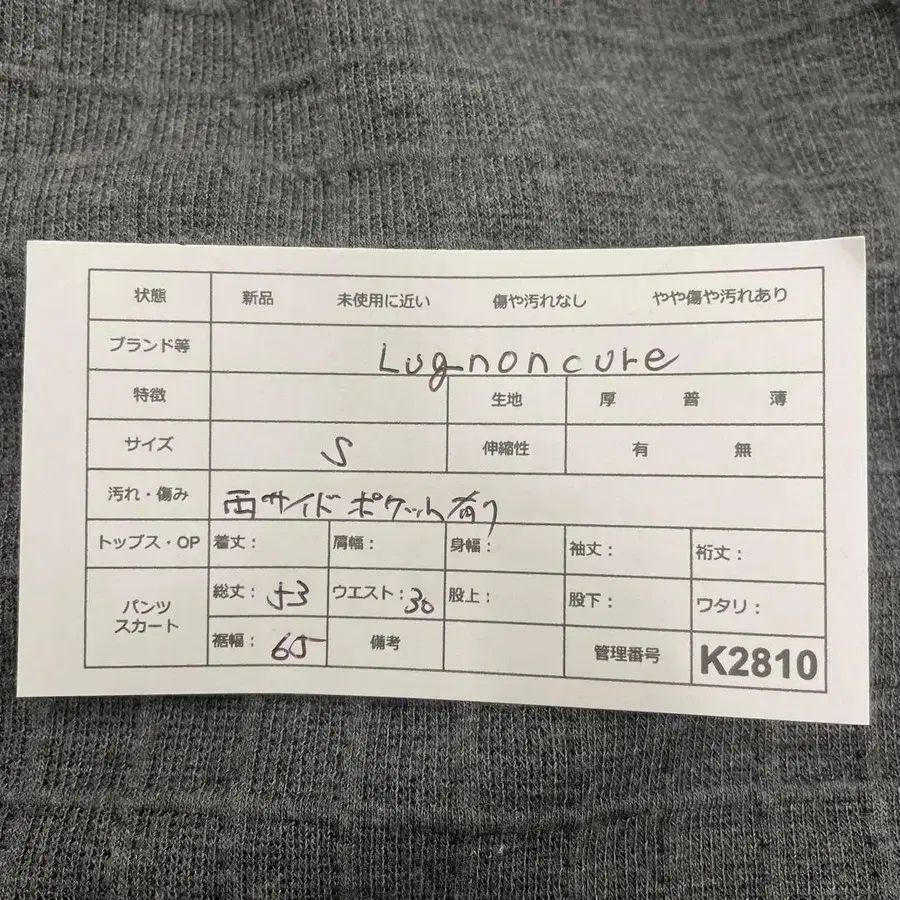 状態 新品 未使用に近い 傷や汚れなし やや傷や汚れあり
ブランド等 Lugnoncure
特徴 生地 厚 普 薄
サイズ S 伸縮性 有 無
汚れ・傷み 両サイドポケット有り
トップス・OP 着丈: 肩幅: 身幅: 袖丈: 裄丈:
パンツ
スカート
総丈: 53 ウエスト: 30 股上: 股下: ワタリ:
裾幅: 65 備考 管理番号 K2810